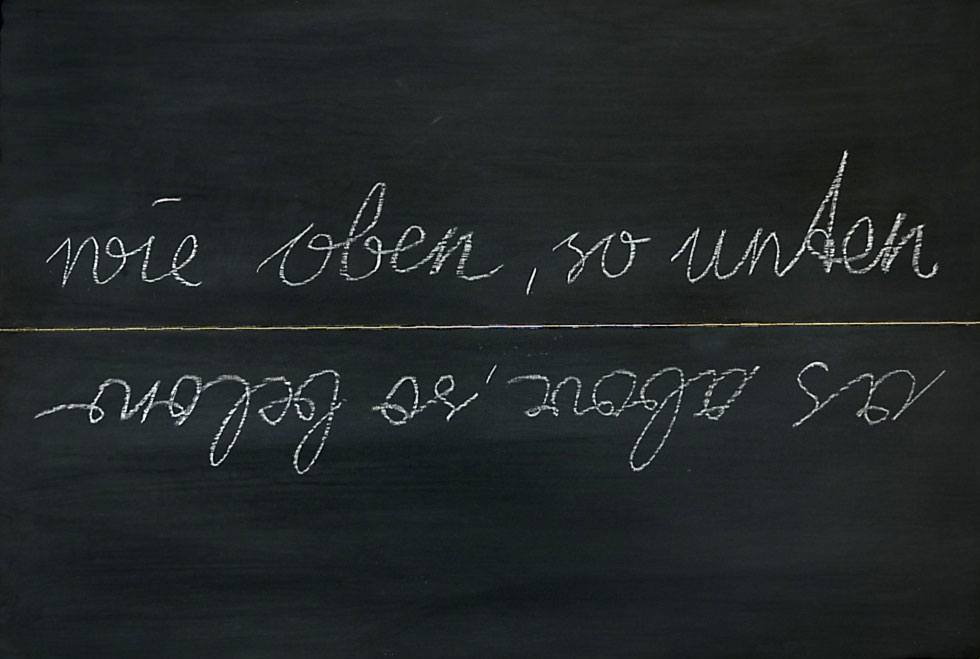 wie oben, so unten
as above, so below